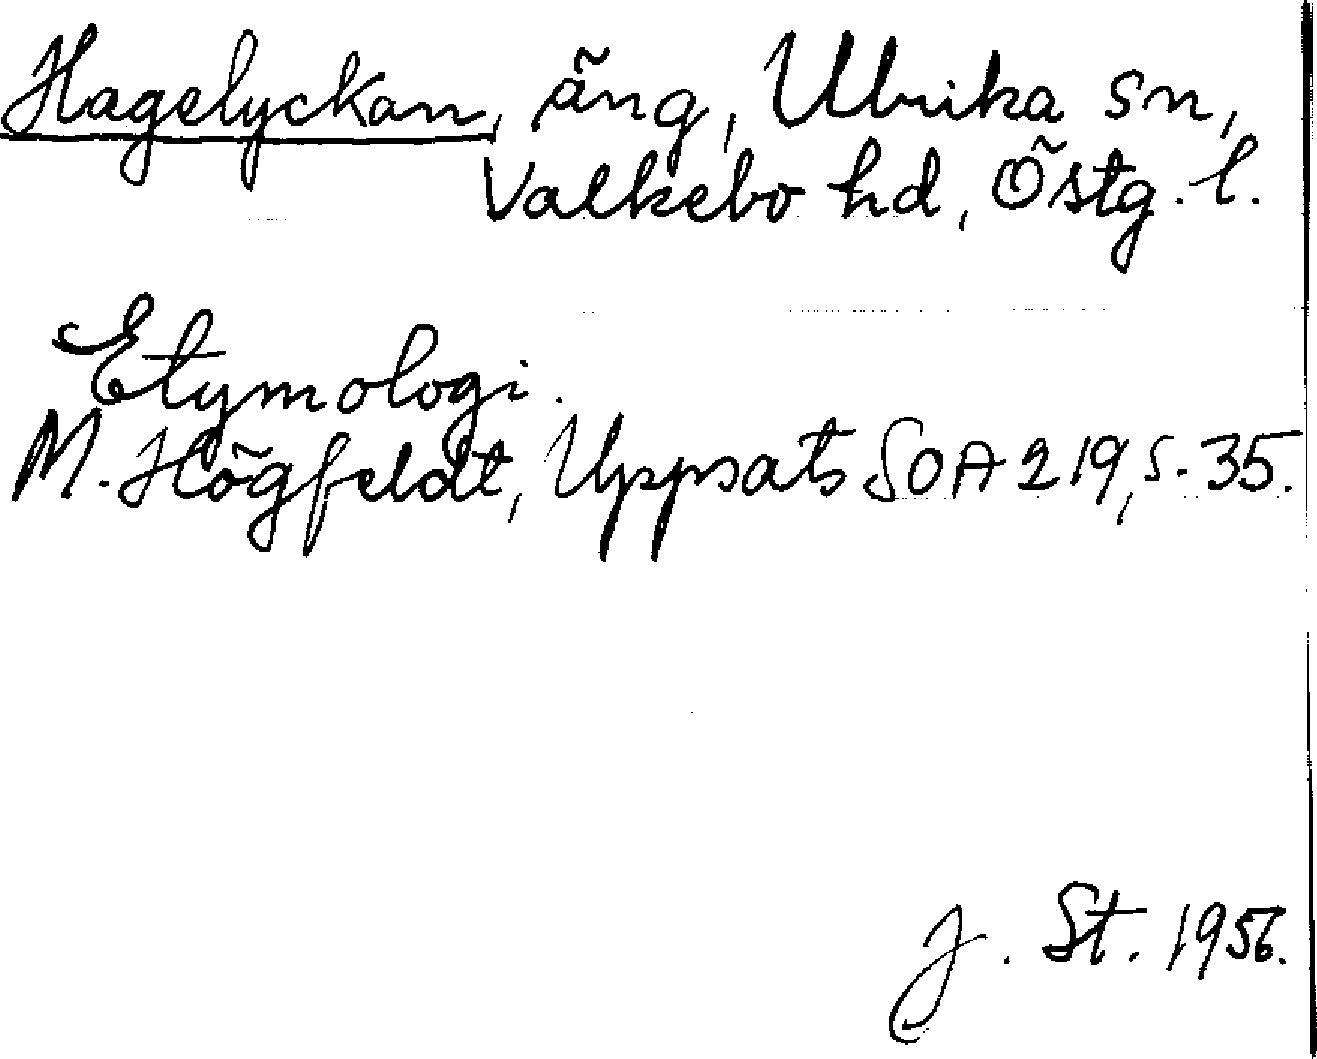 Hagelyckan, äng, Ulrika sn,
Valkebo hd, Östg. l.
Etymologi.
M. Högfeldt, Uppsats SOA 219, s. 35.
J. St. 1956.